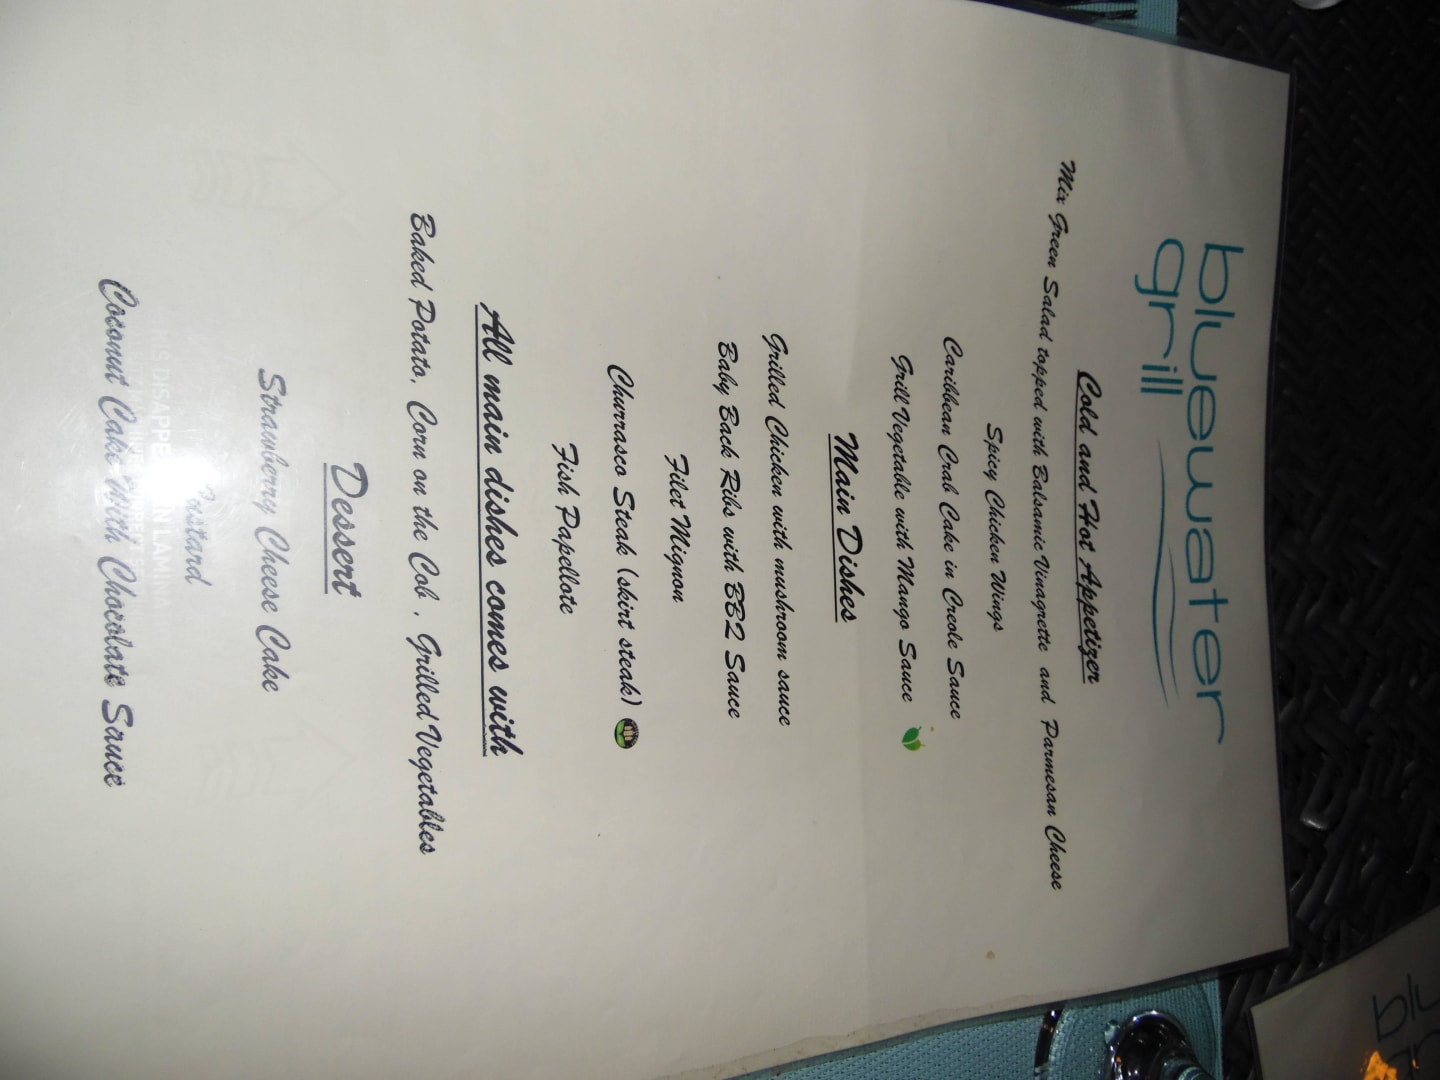 bluewater
grill
Cold and Hot Appetizer
Mix Green Salad topped with Balsamic Vinagrette and Parmesan Cheese
Spicy Chicken Wings
Caribbean Crab Cake in Creole Sauce
Grill Vegetable with Mango Sauce
Main Dishes
Grilled Chicken with mushroom sauce
Baby Back Ribs with BBQ Sauce
Filet Mignon
Churrasco Steak (skirt steak)
Fish Papellote
All main dishes comes with
Baked Potato, Corn on the Cob , Grilled Vegetables
Dessert
Strawberry Cheese Cake
Custard
Coconut Cake With Chocolate Sauce